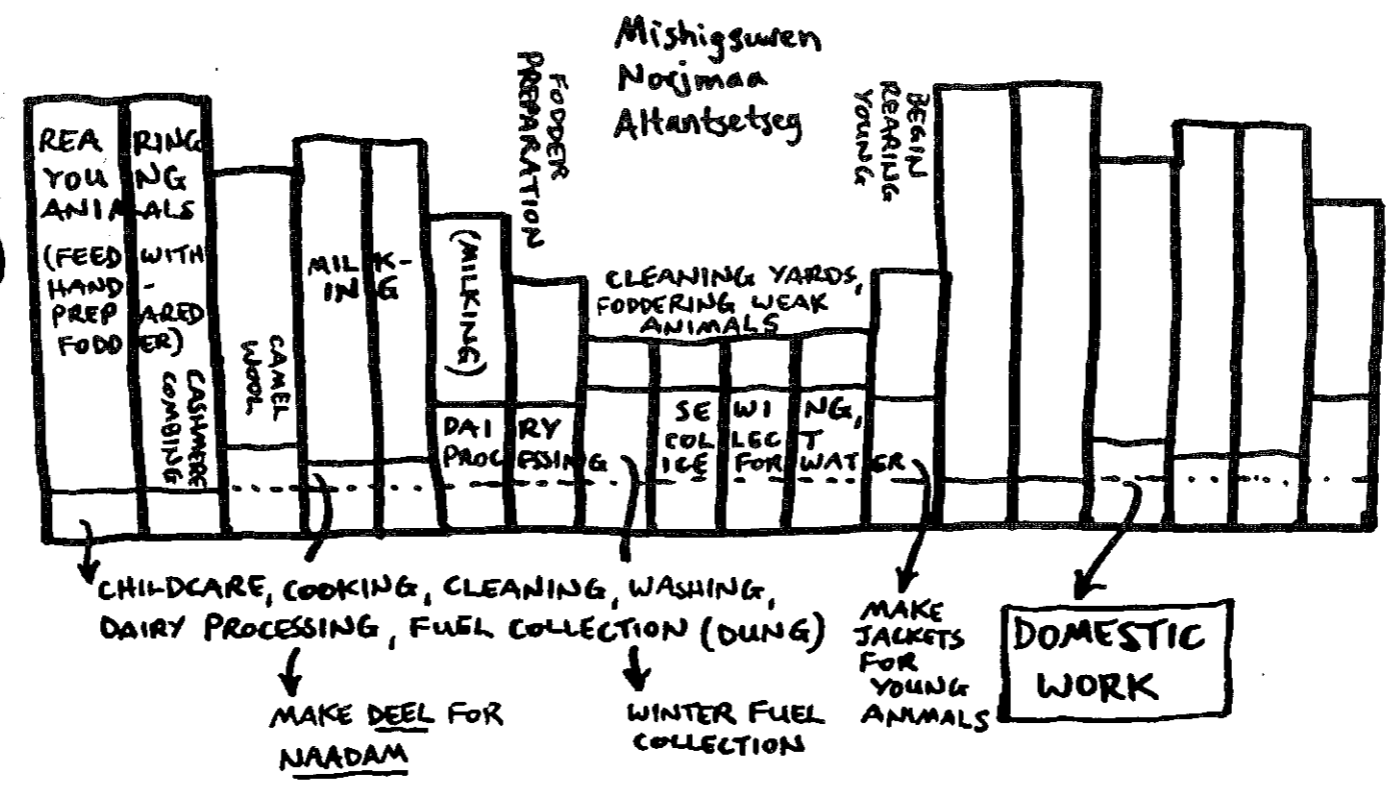 Mishigsuren
Norjmaa
Altantsetseg
FODDER
PREPARATION
BEGIN
REARING
YOUNG
REARING
YOUNG
ANIMALS
(FEED WITH
HAND-
PREPARED
FODDER)
CASHMERE
COMBING
CAMEL
WOOL
MILK-
ING
(MILKING)
DAIRY
PROCESSING
CLEANING YARDS,
FODDERING WEAK
ANIMALS
SEWING,
COLLECT
ICE FOR WATER
CHILDCARE, COOKING, CLEANING, WASHING,
DAIRY PROCESSING, FUEL COLLECTION (DUNG)
MAKE DEEL FOR
NAADAM
WINTER FUEL
COLLECTION
MAKE
JACKETS
FOR
YOUNG
ANIMALS
DOMESTIC
WORK